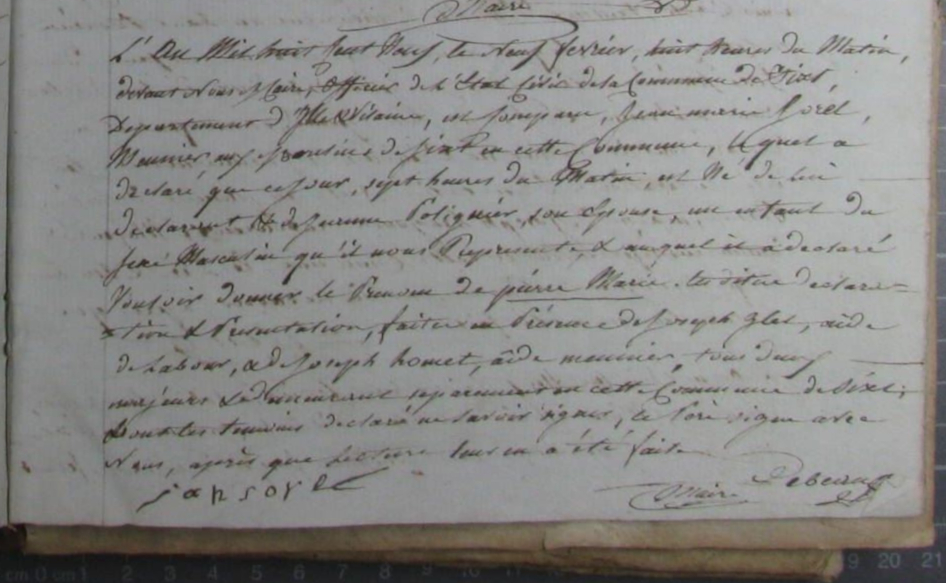 Maire
L'an Mil huit Cent Neuf, le Neuf fevrier, huit heures du Matin,
devant Nous Maire, Officier de l'Etat Civil de la Commune de Sixt,
Departement d'Ille & Vilaine, est Comparu, Jean marie Sorel,
Meunier aux de Sixt en cette Commune, lequel a
declaré que ce Jour, sept heures du Matin, est Né de lui
declarant & de Jeanne Poligner, son Epouse, un enfant du
Sexe Masculin qu'il nous Represente, & auquel il a declaré
Vouloir donner le Prenom de pierre Marie. les dites declara=
=tion & Presentation, faites en Présence de Joseph, aide
de Labour, & de Joseph homet, aide meunier, tous deux
majeurs & demeurant separement en cette Commune de Sixt;
dont les temoins declaré ne savoir signer, le Pere signe avec
Nous, après que Lecture leur en a été faite
jan sorel
Maire